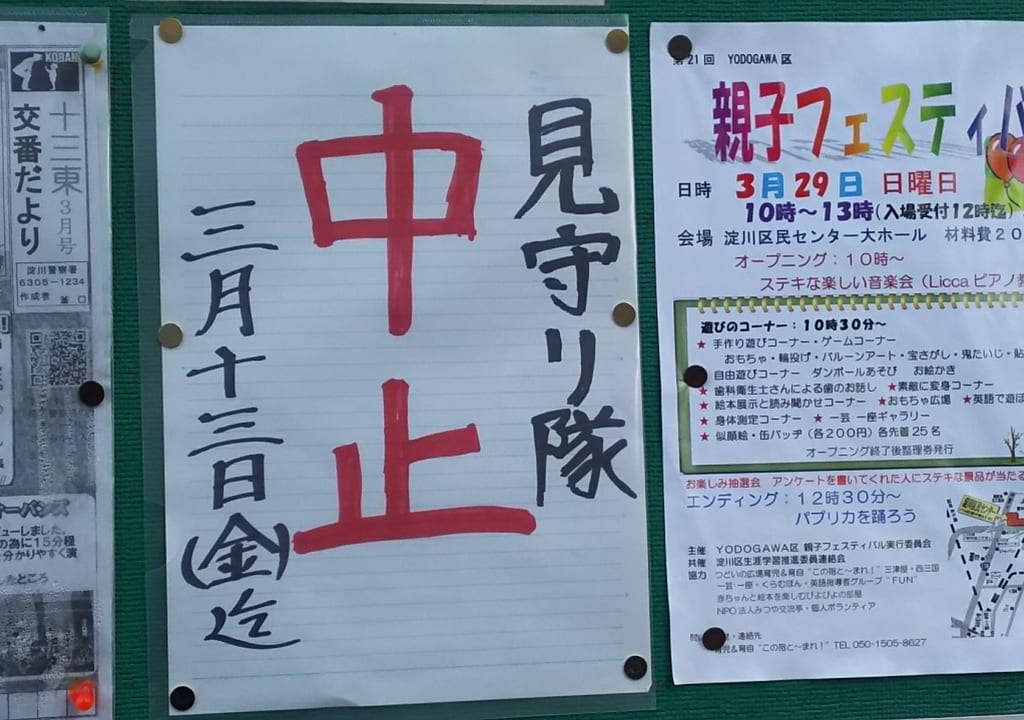 KOBAN
十三東
3月号
交番だより
淀川警察署
6305-1234
作成者
ューしました。
の為に15分程
分かりやすく演
たところ
見守り隊
中止
三月十三日(金)迄
第21回 YODOGAWA区
親子フェスティバ
日時 3月29日 日曜日
10時～13時(入場受付12時迄)
会場 淀川区民センター大ホール 材料費20
オープニング：10時～
ステキな楽しい音楽会（Liccaピアノ教
遊びのコーナー：10時30分～
★ 手作り遊びコーナー・ゲームコーナー
おもちゃ・輪投げ・バルーンアート・宝さがし・鬼たいじ・貼
自由遊びコーナー ダンボールあそび お絵かき
★ 歯科衛生士さんによる歯のお話し ★素敵に変身コーナー
★ 絵本展示と読み聞かせコーナー ★おもちゃ広場 ★英語で遊ぼ
★ 身体測定コーナー ★ 一芸一座ギャラリー
★ 似顔絵・缶バッヂ（各200円）各先着25名
オープニング終了後整理券発行
お楽しみ抽選会 アンケートを書いてくれた人にステキな景品が当たる
エンディング：12時30分～
パプリカを踊ろう
主催 YODOGAWA区 親子フェスティバル実行委員会
共催 淀川区生涯学習推進委員連絡会
協力 つどいの広場育児＆育自“この指と～まれ！”三津屋・西三国
一芸一座・くらむぼん・英語指導者グループ“FUN”
赤ちゃんと絵本を楽しむぴよぴよの部屋
NPO法人みつや交流亭・個人ボランティア
・連絡先
育児＆育自“この指と～まれ！” TEL 050-1505-8627